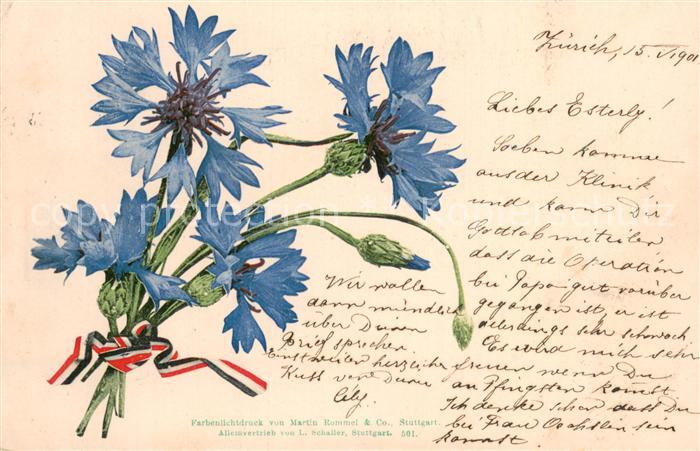 Zürich, 15. V. 1901
Liebes Esterly!
Soeben komme
aus der Klinik
und kann Dir
Gottlob mitteilen
dass die Operation
bei Papa gut vorüber
gegangen ist, er ist
allerdings sehr schwach
Es wird mich sehr
freuen wenn Du
an Pfingsten kommst
Ich denke schon dass Du
bei Frau Oechslen sein
kannst.
Wir wollen
dann mündlich
über Deinen
Brief sprechen
Einstweilen herzlichen
Kuss von Deiner
Cily.
Farbenlichtdruck von Martin Rommel & Co., Stuttgart.
Alleinvertrieb von L. Schaller, Stuttgart. 501.